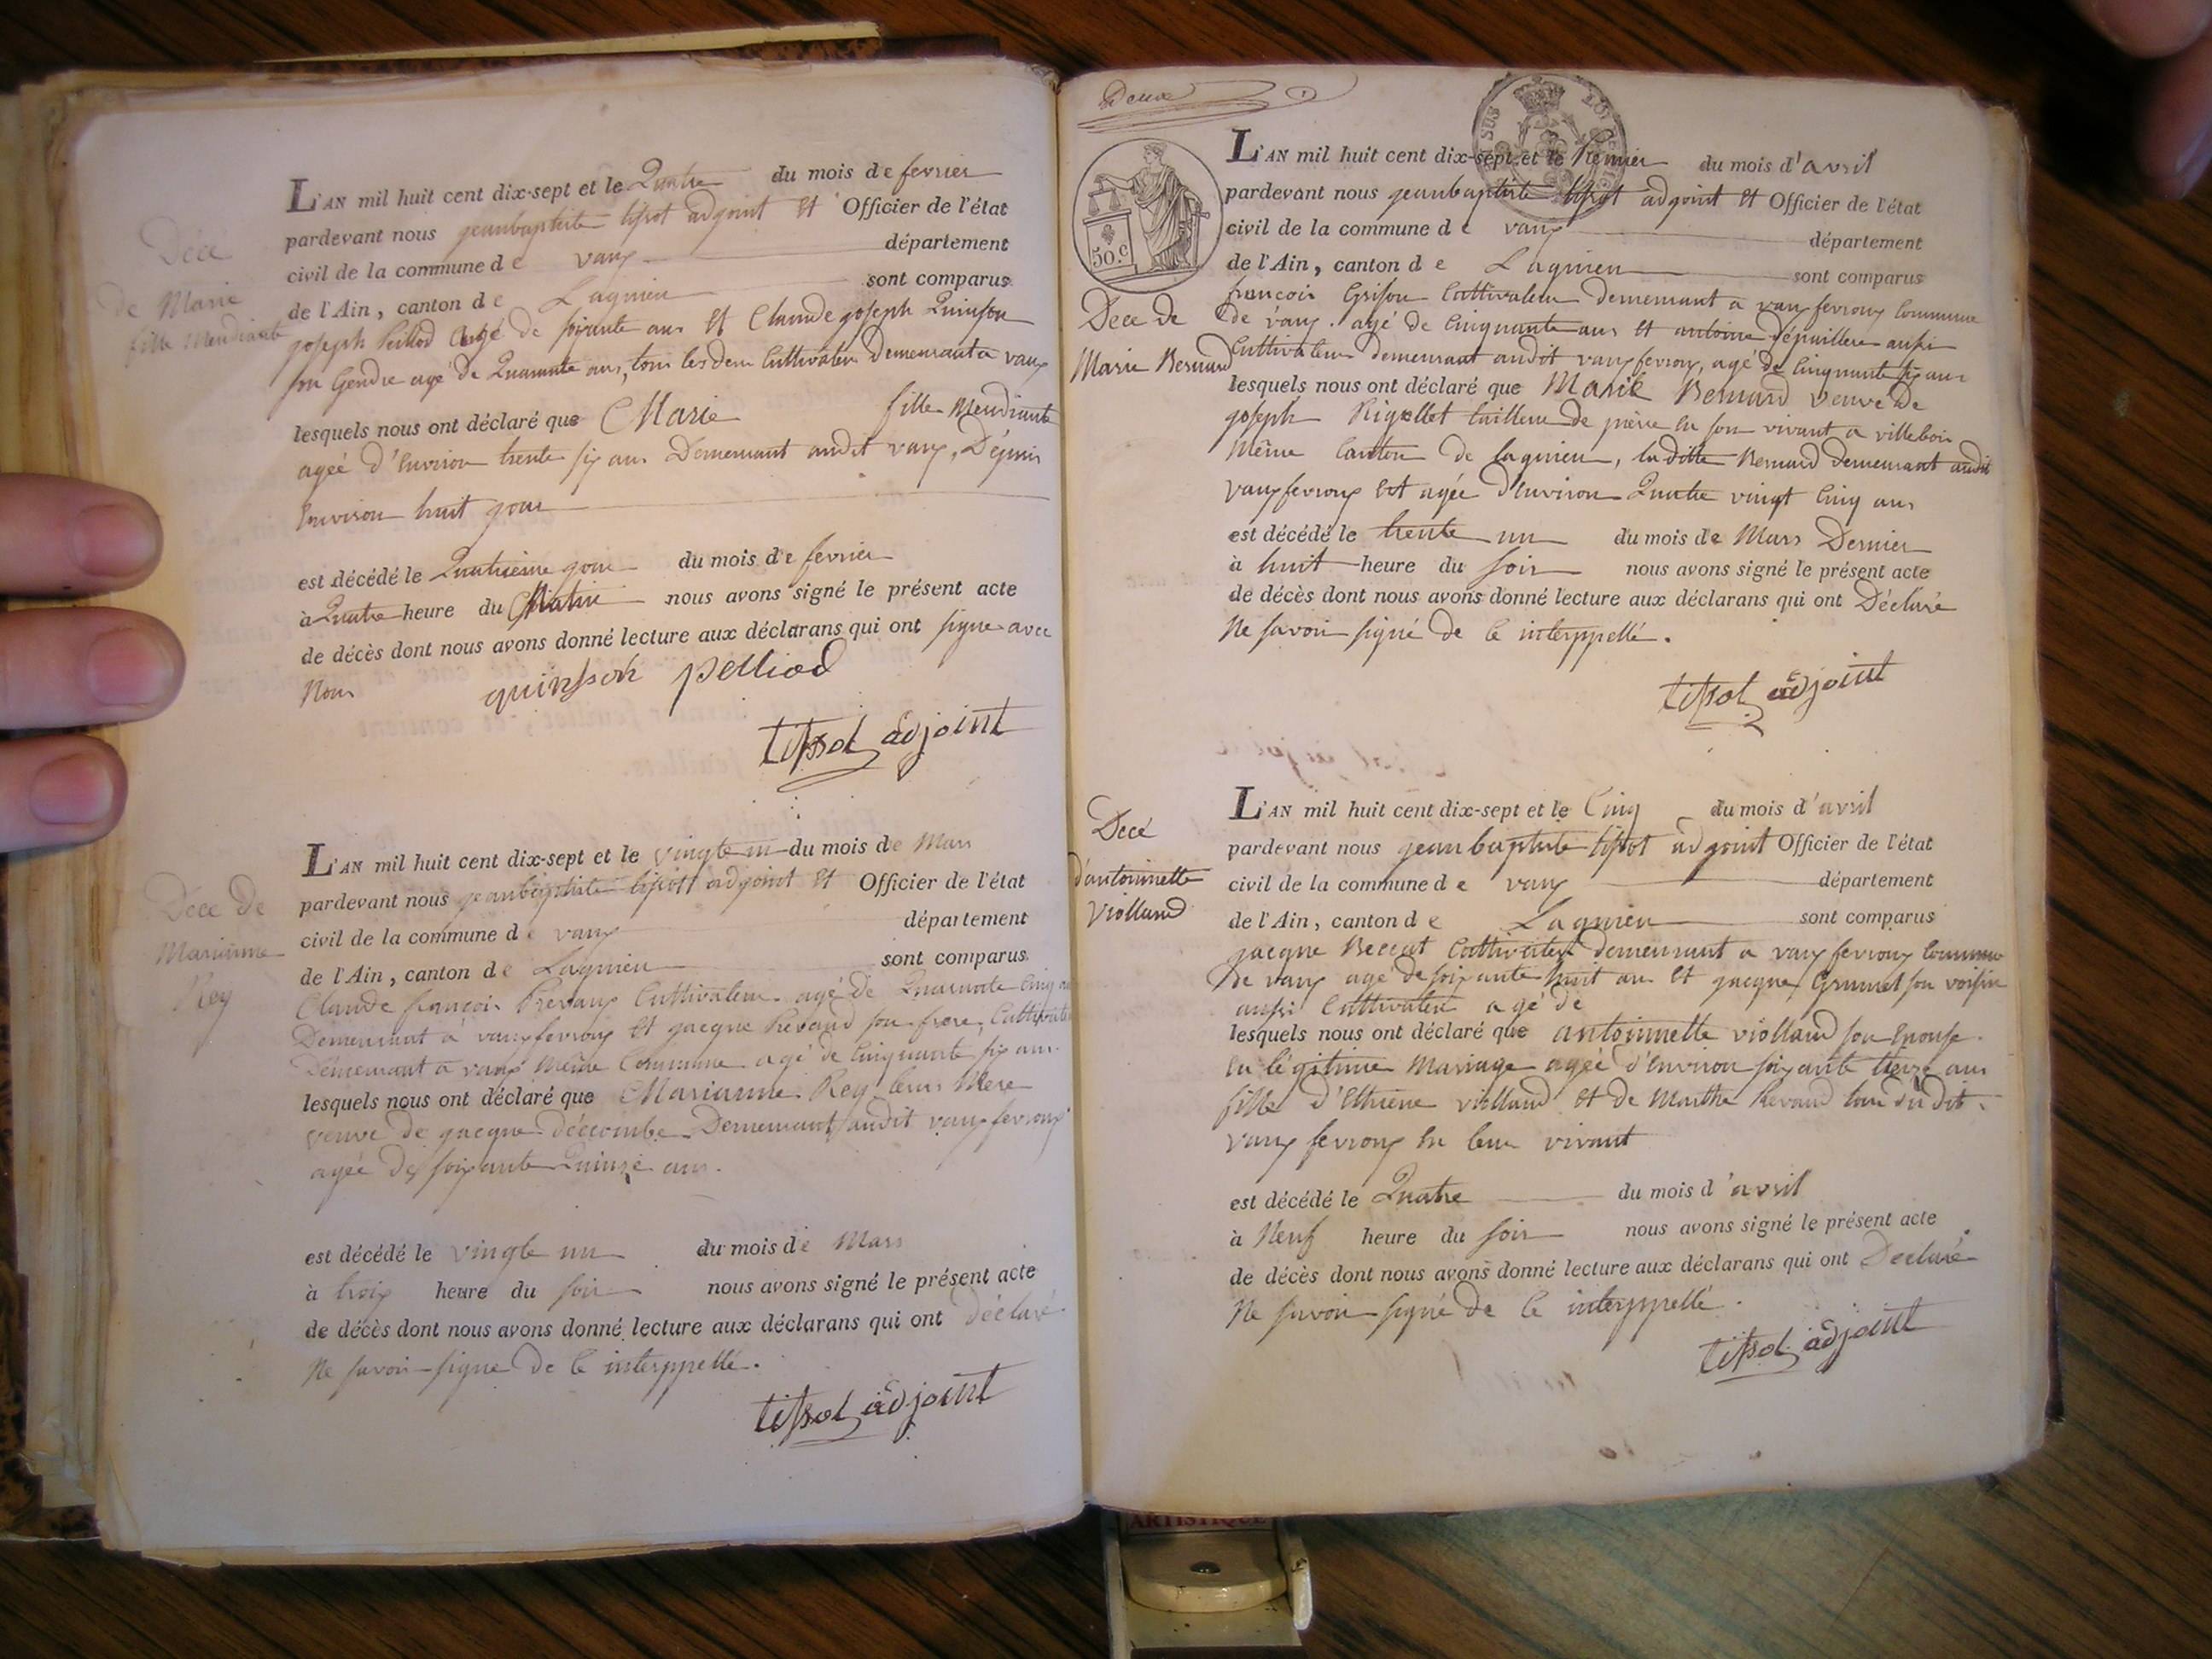 Décé
de Marie
fille Mendiante
L'AN mil huit cent dix-sept et le Quatre du mois de fevrier
pardevant nous jeanbaptiste tissot adjoint Et Officier de l'état
civil de la commune de vaux département
de l'Ain, canton de Lagnieu sont comparus
joseph Peillod agé de soixante ans Et Claude joseph Quinson
son Gendre agé de Quarante ans, tous les deux Cultivateur Demeurant a vaux
lesquels nous ont déclaré que Marie fille Mendiante
ageé d'Environ trente six ans Demeurant audit vaux, Dépuis
Environ huit jour
est décédé le Quatrieme jour du mois de fevrier
à Quatre heure du Matin nous avons signé le présent acte
de décès dont nous avons donné lecture aux déclarans qui ont signe avec
Nous quinson pelliod
tissot adjoint
Décé De
Marianne
Rey
L'AN mil huit cent dix-sept et le vingte un du mois de Mars
pardevant nous jeanbaptiste tissott adjoint Et Officier de l'état
civil de la commune de vaux département
de l'Ain, canton de Lagnieu sont comparus
Claude françois Prevaux Cultivateur agé de Quarante Cinq
Demeurant à vauxfevroux Et jacque Revaud son frere, Cultivateur
Demeurant a vaux Même Commune agé de Cinquante six ans
lesquels nous ont déclaré que Marianne Rey leurs Mere
veuve de jacque Déccombe Demeurant audit vauxfevroux
agée De soixante Quinze ans.
est décédé le vingte un du mois de Mars
à troix heure du soir nous avons signé le présent acte
de décès dont nous avons donné lecture aux déclarans qui ont déclaré
Ne savoir signe De Ce interppellé.
tissot adjoint
Deux
SUS
50.c
Décé De
Marie Bernard
L'AN mil huit cent dix-sept et le Premier du mois d'avril
pardevant nous jeanbaptiste tissot adjoint Et Officier de l'état
civil de la commune de vaux département
de l'Ain, canton de Lagnieu sont comparus
francois Grisou Cultivateur demeurant a vauxfevroux Commune
De vaux. agé de Cinquante ans Et antoine Dépuillere aussi
Cultivateur demeurant audit vauxfevroux, agé de Cinquante six ans
lesquels nous ont déclaré que Marie Bernard veuve De
joseph Rigollet tailleur de pière En son vivant a villebois
Même Canton de lagnieu, laditte Bernard Demeurant audit
vauxfevroux Est agée d'Environ Quatre vingt Cinq ans
est décédé le trente un du mois de Mars Dernier
à huit heure du soir nous avons signé le présent acte
de décès dont nous avons donné lecture aux déclarans qui ont Déclaré
Ne savoir signé De Ce interppellé.
tissot adjoint
Décé
d'antoinnette
Violland
L'AN mil huit cent dix-sept et le Cinq du mois d'avril
pardevant nous jeanbaptiste tissot adjoint Officier de l'état
civil de la commune de vaux département
de l'Ain, canton de Lagnieu sont comparus
jacque Beccat Cultivateur demeurant a vauxfevroux Commune
De vaux agé de soixante huit ans Et jacque Grumet son voisin
aussi Cultivateur agé de
lesquels nous ont déclaré que antoinnette violland son Epouse
En légitime Mariage ageé d'Environ soixante treize ans
fille d'Ethiene violland Et de Marthe Revaud tous du dit
vaux fevroux En leur vivant
est décédé le Quatre du mois d'avril
à Neuf heure du soir nous avons signé le présent acte
de décès dont nous avons donné lecture aux déclarans qui ont Declaré
Ne savoir signé De Ce interppellé.
tissot adjoint
ARTISTIQUE